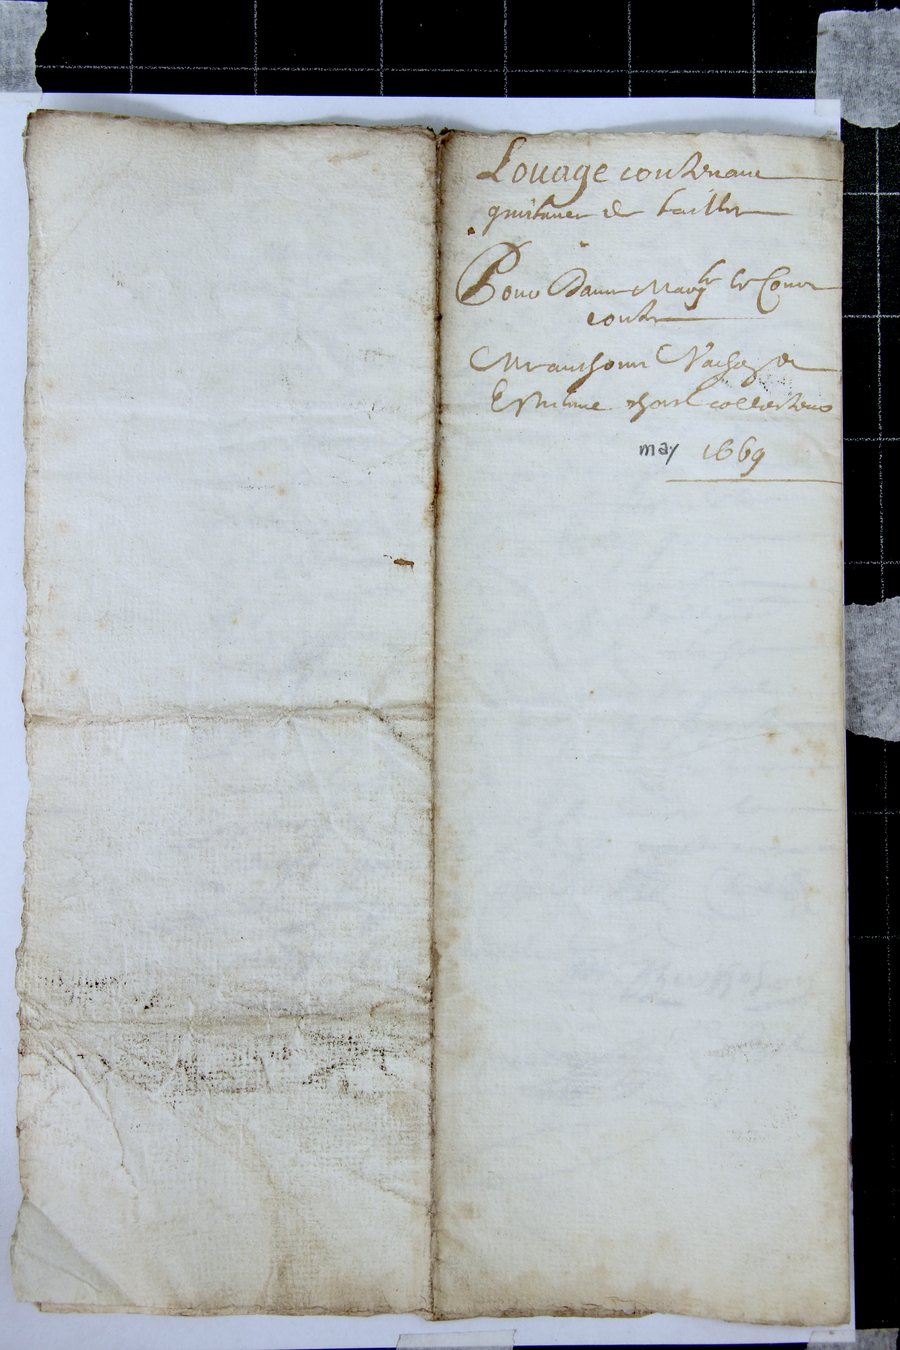 Louage contenant
quitance de tailles
Pour Dame Marg.te le Conte
contre
Me anthoine
Estienne collecteurs
may 1669